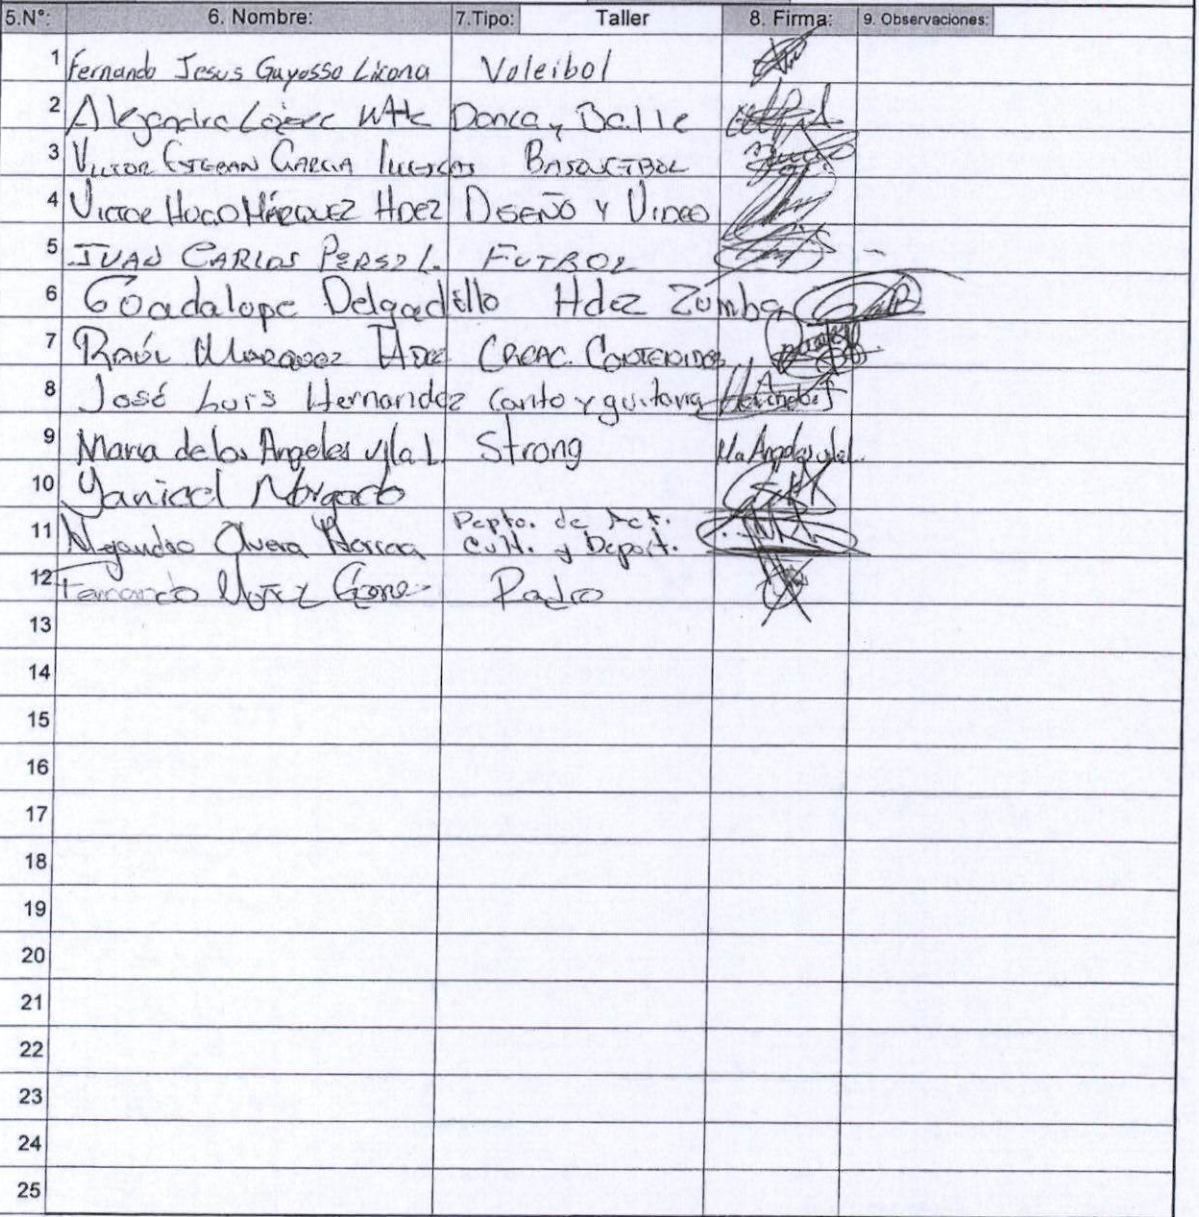 5.N°: 6. Nombre: 7.Tipo: Taller 8. Firma: 9. Observaciones:
1 Fernando Jesus Gayosso Licona Voleibol
2 Alejandra López Danza y Baile
3 Victor Esteban Garcia Basquetbol
4 Victor Hugo Márquez Hdez Diseño y Video
5 Juan Carlos Perez L. Futbol
6 Guadalupe Delgadillo Hdez Zumba
7 Raúl Marquez Hdez Creac. Contenidos
8 José Luis Hernandez Canto y guitarra
9 Maria de los Angeles Vila L Strong Ma Angeles
10
11 Alejandro Olvera Depto. de Act.
Cult. y Deport.
12 Fernando
13
14
15
16
17
18
19
20
21
22
23
24
25